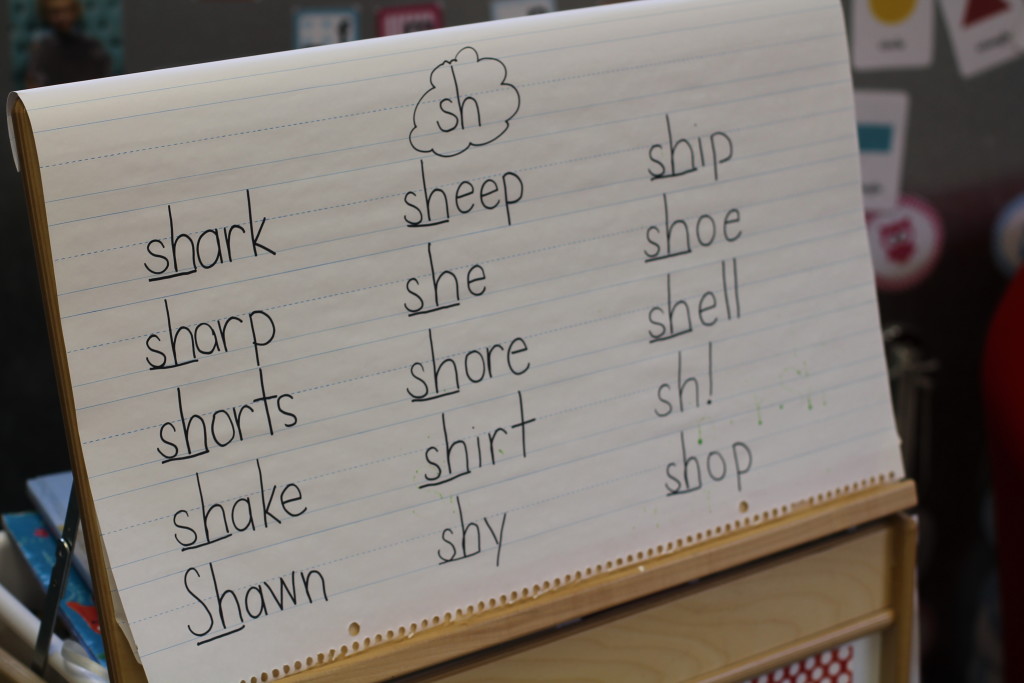 sh
shark
sharp
shorts
shake
Shawn
sheep
she
shore
shirt
shy
ship
shoe
shell
sh!
shop